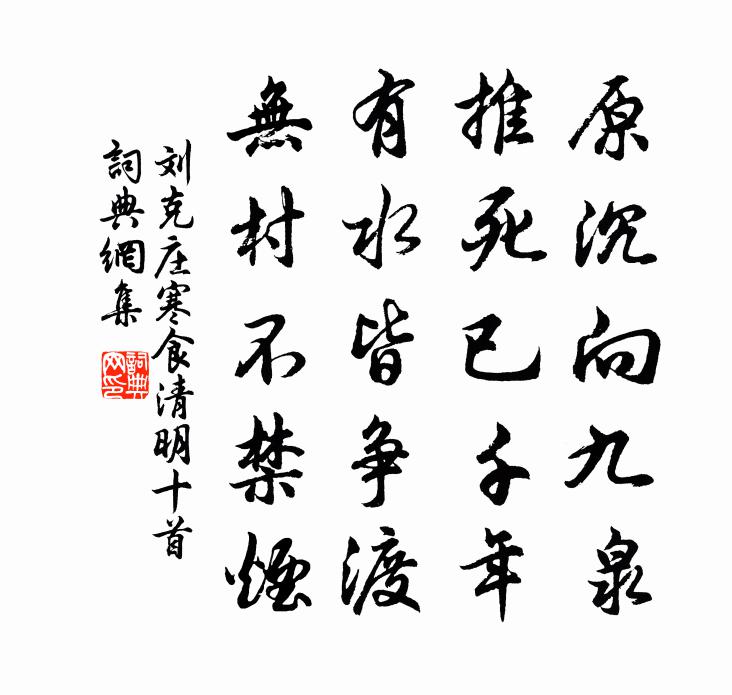 原沉向九泉
推死已千年
有水皆争渡
無村不禁煙
刘克庄寒食清明十首
詞典網集
詞典网印